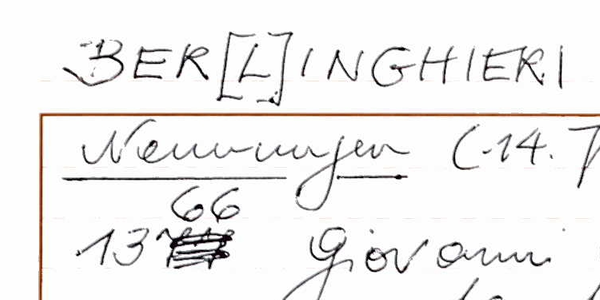 BER[L]INGHIERI
Nennungen (-14.7
66
13
Giovanni